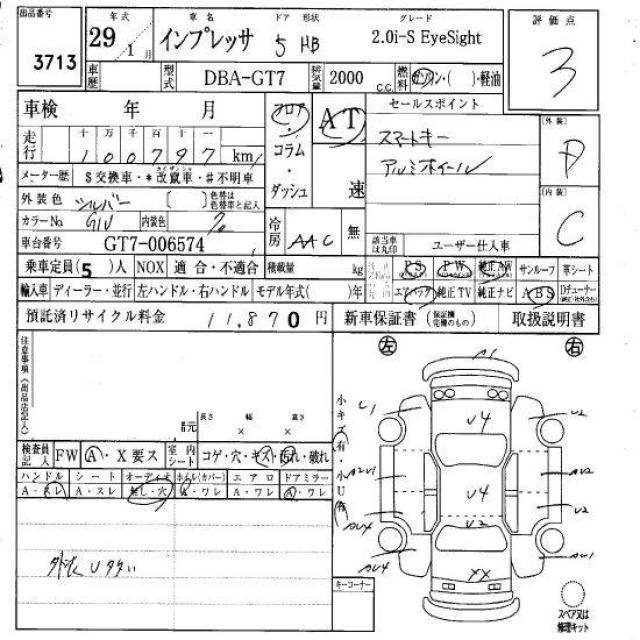 出品番号 年式 車名 ドア 形状 グレード 評価点
3713 29/1月 インプレッサ 5 HB 2.0i-S EyeSight 3
車歴 型式 DBA-GT7 排気量 2000 c.c. 燃料 ガソリン・( )・軽油
車検 年 月 フロア・コラム・ダッシュ AT 速 セールスポイント
走行 十万千百十一 スマートキー [外装]
100797 km アルミホイール D
メーター歴 $交換車・*改竄車・#不明車
外装色 シルバー [ ] 色替は色替車と記入 [内装]
カラーNo G1U 内装色 C
車台番号 GT7-006574 冷房 AAC 無 該当車は丸印 ユーザー仕入車
乗車定員(5)人 NOX 適合・不適合 積載量 kg PS PW 純正AW サンルーフ 革シート
輸入車 ディーラー・並行 左ハンドル・右ハンドル モデル年式( )年 エアバック 純正TV 純正ナビ ABS Dチューナー
預託済リサイクル料金 11,870円 新車保証書 (保証欄完備のもの) 取扱説明書
左 右
注意事項(出品店記入)
A1
U1 U2
U4
長さ 幅 高さ
荷寸 × ×
小キズ(有)・小U(有)
検査員記入 FW A・X要ス 室内シート コゲ・穴・キズ・汚れ・破れ
A2U1 AU2
ハンドル シート オーディオ ホイル(カバー) エアロ ドアミラー
A・スレ A・スレ 無し・穴 A・ワレ A・ワレ A・ワレ
U4 U2
U2
AU4
外装 U多い AU4 AU1
XX
キーコーナー
スペア又は修理キット